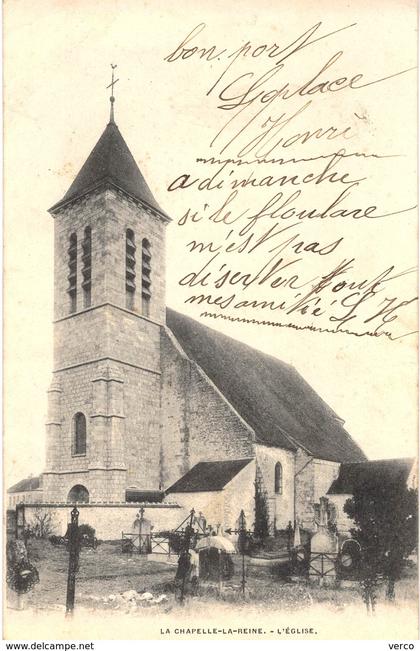 bon. port
Leplace
Henri
a dimanche
si le floulare
m'est pas
déserter tout
mes amitié L H
LA CHAPELLE-LA-REINE. - L'ÉGLISE.
verco